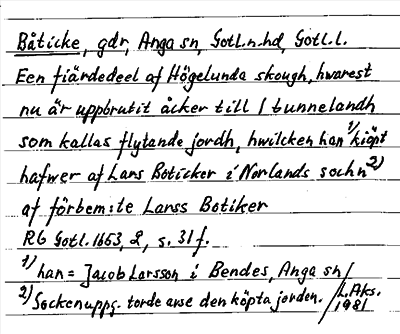 Båticke, gdr, Anga sn, Gotl.n.hd, Gotl.l.
Een fiärdedeel af Högelunda skough, hwarest
nu är uppbrutit åcker till 1 tunnelandh
som kallas flytande jordh, hwilcken han 1) kiöpt
hafwer af Lars Boticker i Norlands sochn 2)
af förbem:te Larss Botiker
RG Gotl. 1653, 2, s. 31 f.
1) han = Jacob Larsson i Bendes, Anga sn/
2) Sockenuppg. torde avse den köpta jorden. /L.Aks.
1981